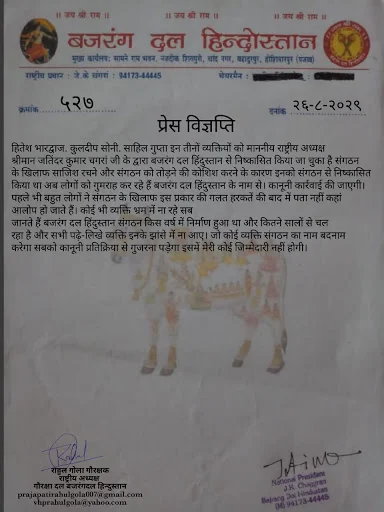 ॥ जय श्री राम ॥ ॥ जय श्री राम ॥ ॥ जय श्री राम ॥
बजरंग दल हिन्दोस्तान
मुख्य कार्यालय: सामने राम भवन, नजदीक शिमलापुरी, चांद नगर, बहादुरपुर, होशियारपुर (पंजाब)
राष्ट्रीय प्रधान : जे.के चंगरां : 94173-44445 चेयरमैन :
क्रमांक ५२७ दनांक २६-८-२०२९
प्रेस विज्ञप्ति
हितेश भारद्वाज. कुलदीप सोनी. साहिल गुप्ता इन तीनों व्यक्तियों को माननीय राष्ट्रीय अध्यक्ष
श्रीमान जतिंदर कुमार चगरां जी के द्वारा बजरंग दल हिंदुस्तान से निष्कासित किया जा चुका है संगठन
के खिलाफ साजिश रचने और संगठन को तोड़ने की कोशिश करने के कारण इनको संगठन से निष्कासित
किया था अब लोगों को गुमराह कर रहे हैं बजरंग दल हिंदुस्तान के नाम से। कानूनी कार्रवाई की जाएगी।
पहले भी बहुत लोगों ने संगठन के खिलाफ इस प्रकार की गलत हरकतें की बाद में पता नहीं कहां
आलोप हो जाते हैं। कोई भी व्यक्ति भ्रम में ना रहे सब
जानते हैं बजरंग दल हिंदुस्तान संगठन किस वर्ष में निर्माण हुआ था और कितने सालों से चल
रहा है और सभी पढ़े-लिखे व्यक्ति इनके झांसे में ना आए। जो कोई व्यक्ति संगठन का नाम बदनाम
करेगा सबको कानूनी प्रतिक्रिया से गुजरना पड़ेगा इसमें मेरी कोई जिम्मेदारी नहीं होगी।
राहुल गोला गौरक्षक
राष्ट्रीय अध्यक्ष
गौरक्षा दल बजरंगदल हिन्दुस्तान
prajapatirahulgola007@gmail.com
vhprahulgola@yahoo.com
National President
J.K. Chaggran
Bajrang Dal Hindustan
(M) 94173-44445